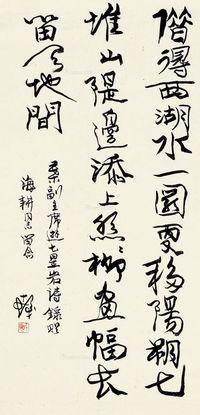 借得西湖水一圜更移陽朔七
堆山隄邊添上絲絲柳畫幅長
留天地間
葉副主席遊七星岩詩錄贈
海耕同志留念